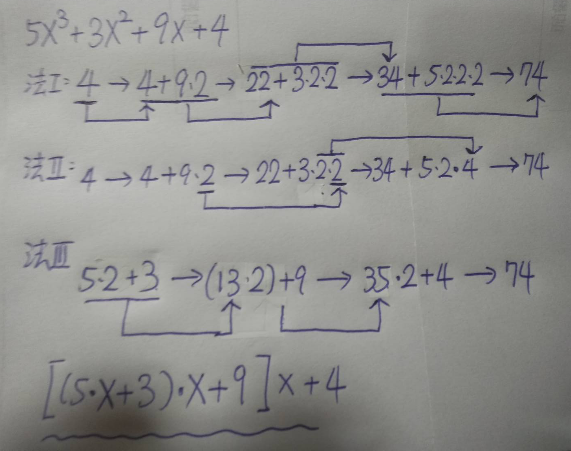 5x³+3x²+9x+4
法I: 4 → 4+9·2 → 22+3·2·2 → 34+5·2·2·2 → 74
法II: 4 → 4+9·2 → 22+3·2·2 → 34+5·2·4 → 74
法III
5·2+3 → (13·2)+9 → 35·2+4 → 74
[(5·x+3)·x+9]x+4